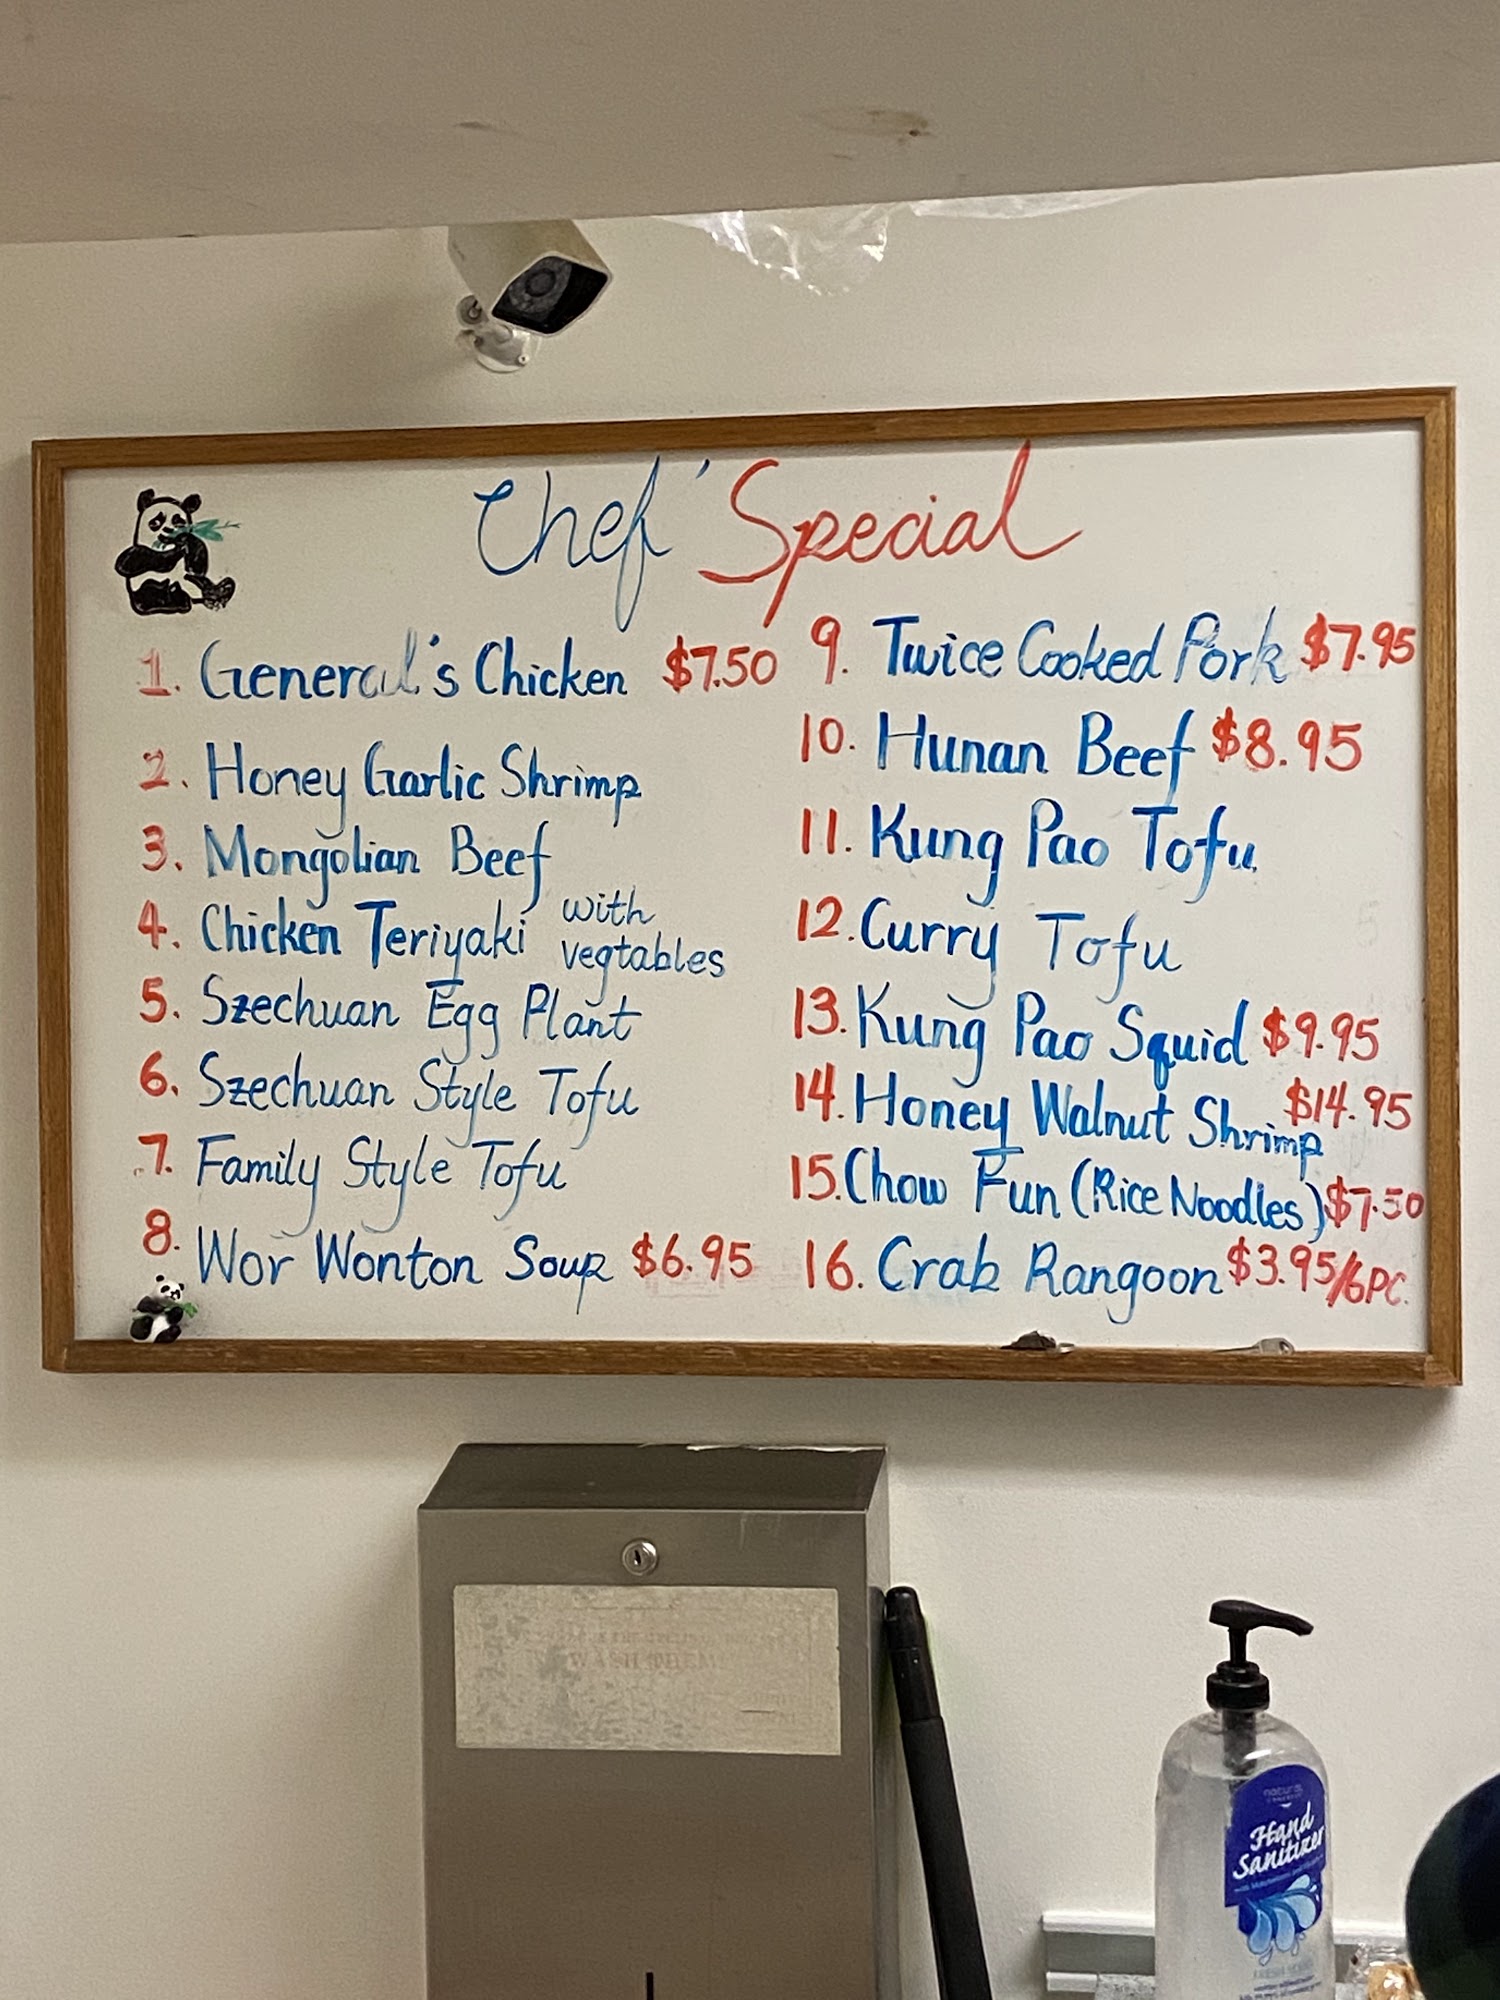 Chef' Special
1. General's Chicken $7.50
2. Honey Garlic Shrimp
3. Mongolian Beef
4. Chicken Teriyaki with vegtables
5. Szechuan Egg Plant
6. Szechuan Style Tofu
7. Family Style Tofu
8. Wor Wonton Soup $6.95
9. Twice Cooked Pork $7.95
10. Hunan Beef $8.95
11. Kung Pao Tofu
12. Curry Tofu
13. Kung Pao Squid $9.95
14. Honey Walnut Shrimp $14.95
15. Chow Fun (Rice Noodles) $7.50
16. Crab Rangoon $3.95/6PC.
WASH THEM
natural
Hand
Sanitizer